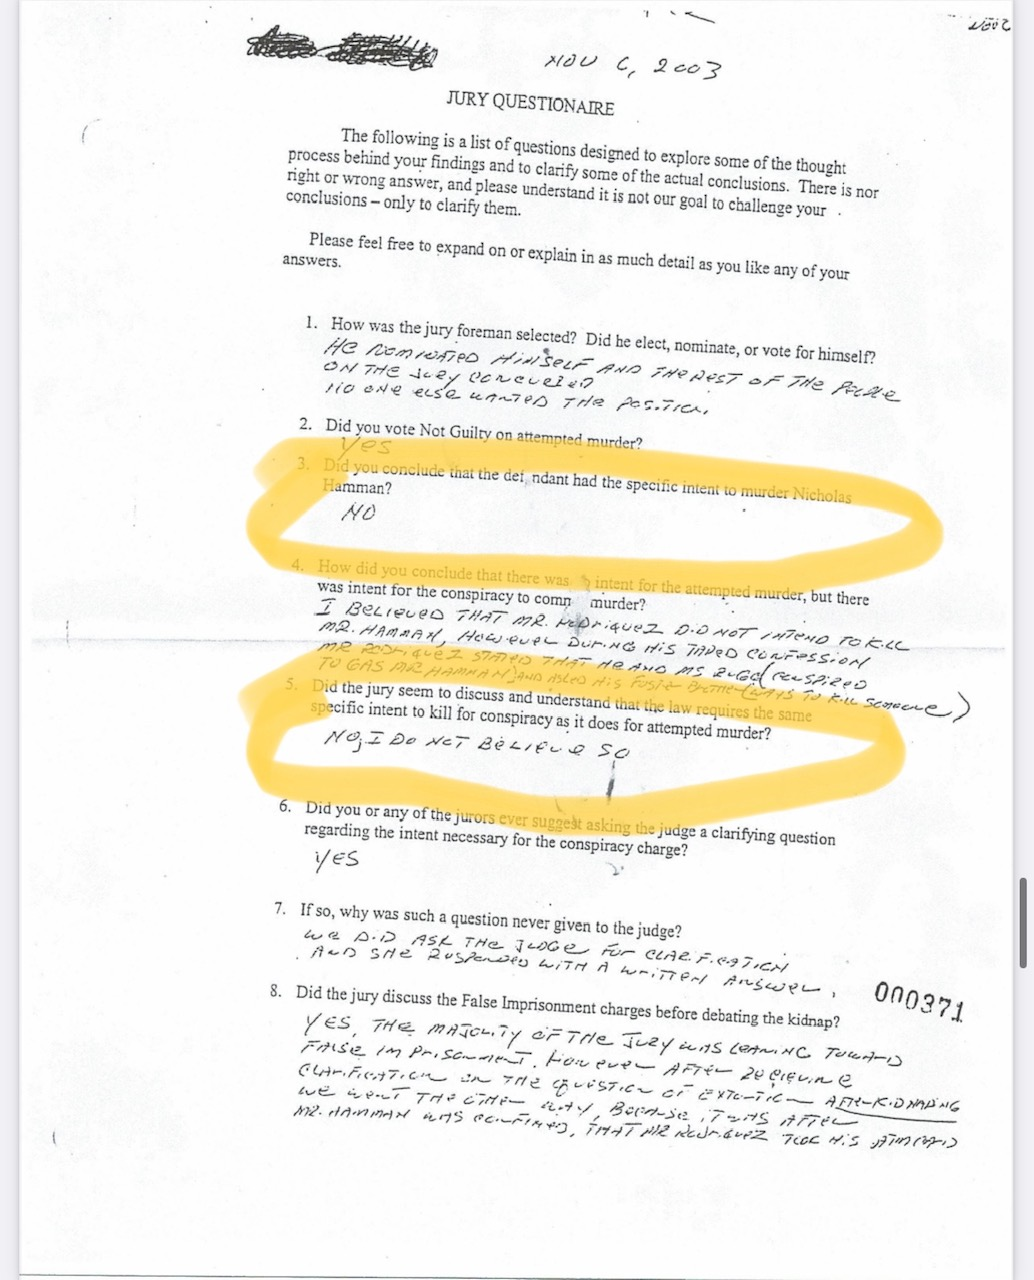 NOV 6, 2003
JURY QUESTIONAIRE
The following is a list of questions designed to explore some of the thought
process behind your findings and to clarify some of the actual conclusions. There is nor
right or wrong answer, and please understand it is not our goal to challenge your
conclusions – only to clarify them.
Please feel free to expand on or explain in as much detail as you like any of your
answers.
1. How was the jury foreman selected? Did he elect, nominate, or vote for himself?
HE NOMINATED HIMSELF AND THE REST OF THE PEOPLE
ON THE JURY CONCURRED
NO ONE ELSE WANTED THE POSITION.
2. Did you vote Not Guilty on attempted murder?
Yes
3. Did you conclude that the def ndant had the specific intent to murder Nicholas
Hamman?
NO
4. How did you conclude that there was intent for the attempted murder, but there
was intent for the conspiracy to comm murder?
I BELIEVED THAT MR. RODRIQUEZ DID NOT INTEND TO KILL
MR. HAMMAN, HOWEVER DURING HIS TAPED CONFESSION
MR RODRIQUEZ STATED THAT HE AND MS RUGG CONSPIRED
TO GAS MR HAMMAN) AND ASKED HIS FOSTER BROTHER (WAYS TO KILL SOMEONE)
5. Did the jury seem to discuss and understand that the law requires the same
specific intent to kill for conspiracy as it does for attempted murder?
NO, I DO NOT BELIEVE SO
6. Did you or any of the jurors ever suggest asking the judge a clarifying question
regarding the intent necessary for the conspiracy charge?
YES
7. If so, why was such a question never given to the judge?
WE DID ASK THE JUDGE FOR CLARIFICATION
AND SHE RESPONDED WITH A WRITTEN ANSWER.
000371
8. Did the jury discuss the False Imprisonment charges before debating the kidnap?
YES, THE MAJORITY OF THE JURY WAS LEANING TOWARD
FALSE IMPRISONMENT. HOWEVER AFTER RECIEVING
CLARIFICATION ON THE QUESTION OF EXTORTION AFTER KIDNAPING
WE WENT THE OTHER WAY, BECAUSE IT WAS AFTER
MR. HAMMAN WAS CONFINED, THAT MR RODRIQUEZ TOOK HIS ATM CARD